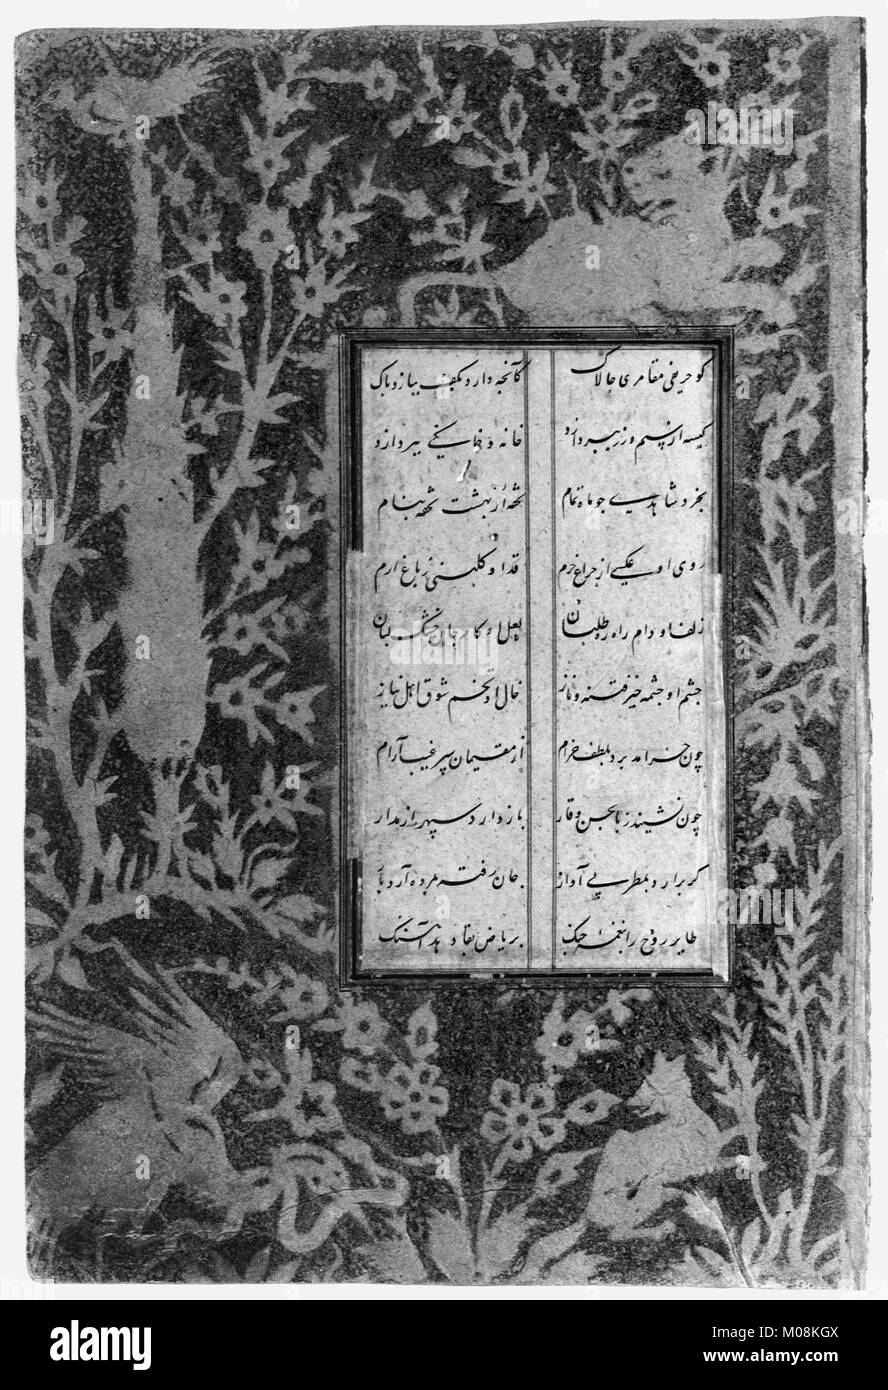 کو حریفی مقامری چالاک کانچه دارد بکف ببازد پاک
کیسه از سیم و زر بپردازد خانه
بخرد شاهدی چو ماه تمام تحفه از بهشت تحفه بنام
روی او عکسی از چراغ خرم قد او گلبنی ز باغ ارم
زلف او دام راه طلبان لعل او کام جان خشک لبان
چشم او چشمه خیز فتنه و ناز خال او تخم شوق اهل نیاز
چون خرامد برد بلطف خرام از مقیمان سر غیب آرام
چون نشیند ز با حسن و وقار باز دارد سپهر را ز مدار
گر برارد بمطربی آواز جان رفته بمرده آرد باز
طایر روح را بنغمه چنگ بر ریاض بقا دهد آهنگ
a
alamy
Image ID: M08KGX
www.alamy.com